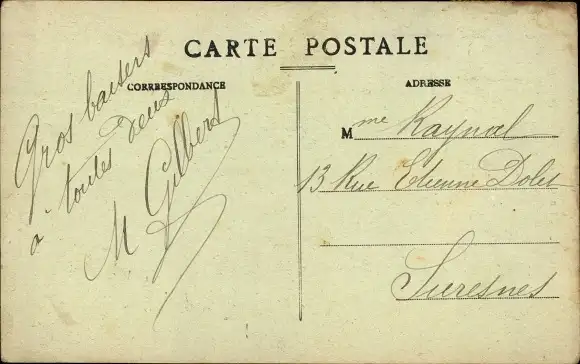 CARTE POSTALE
CORRESPONDANCE
Gros baisers
à toutes deux
M Gilbert
ADRESSE
Mme Raynal
13 Rue Etienne Dolet
Suresnes